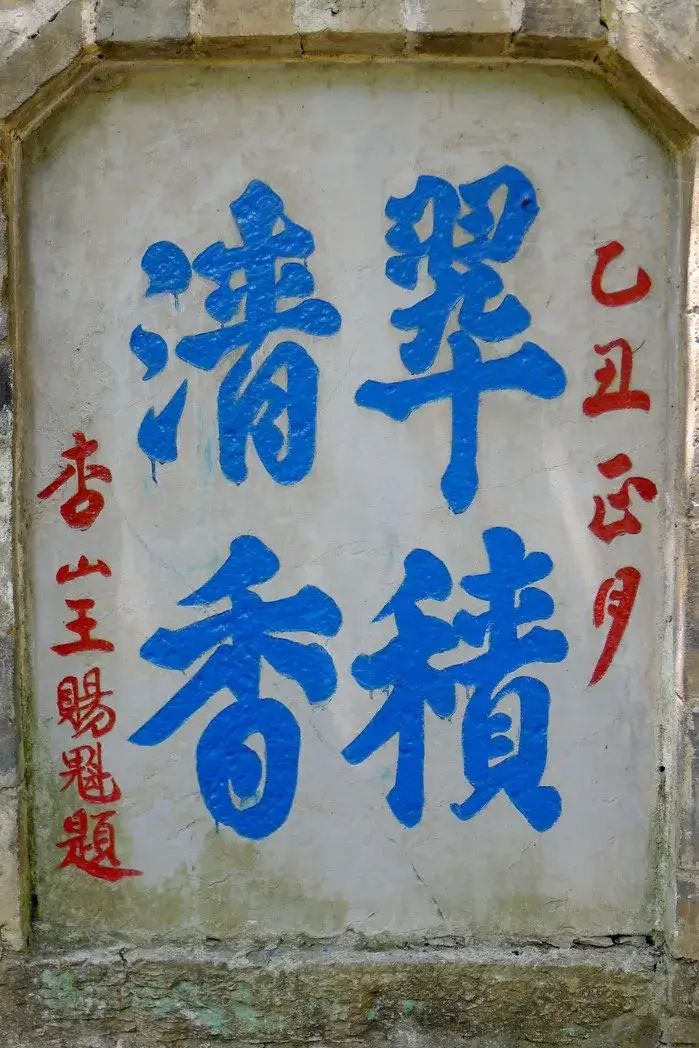 乙丑正月
翠積
清香
杏山王賜魁題